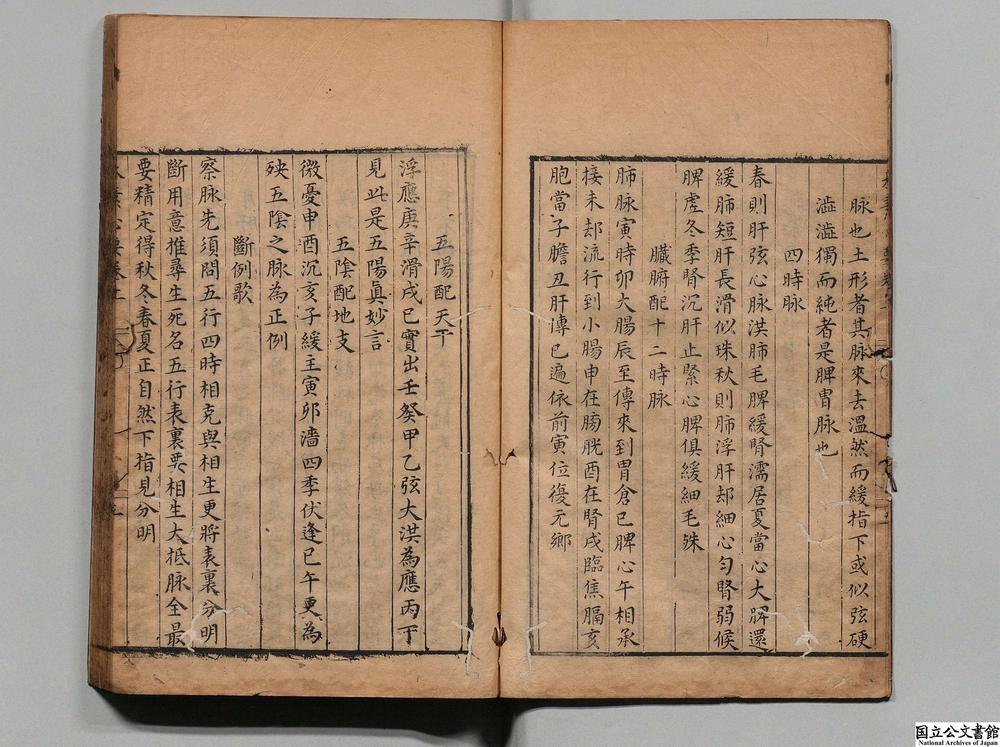 脉也土形者其脉來去溫然而緩指下或似弦硬
澁澁獨而純者是脾胃脉也
四時脉
春則肝弦心脉洪肺毛脾緩腎濡居夏當心大脾還
緩肺短肝長滑似珠秋則肺浮肝却細心勻腎弱候
脾虗冬季腎沉肝止緊心脾俱緩細毛殊
臟腑配十二時脉
肺脉寅時卯大腸辰至傳來到胃倉巳脾心午相承
接未却流行到小腸申在膀胱酉在腎戌臨焦膈亥
胞當子膽丑肝傳已遍依前寅位復元鄉
五陽配天干
浮應庚辛滑戌已實出壬癸甲乙弦大洪為應丙丁
見此是五陽眞妙言
五陰配地支
微憂申酉沉亥子緩主寅卯濇四季伏逢巳午更為
殃五陰之脉為正例
斷例歌
察脉先須問五行四時相克與相生更將表裏分明
斷用意推尋生死名五行表裏要相生大抵脉全最
要精定得秋冬春夏正自然下指見分明
国立公文書館
National Archives of Japan